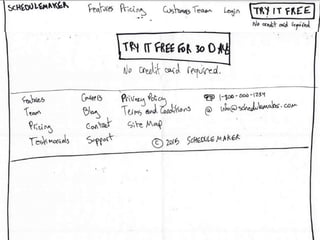 SCHEDULEMAKER Features Pricing Customers Team Login TRY IT FREE
No credit card required
TRY IT FREE FOR 30 DAYS
No credit card required.
Features Careers Privacy Policy 1-800-000-1234
Team Blog Terms and Conditions @
Pricing Contact Site Map
Testimonials Support © 2015 SCHEDULEMAKER